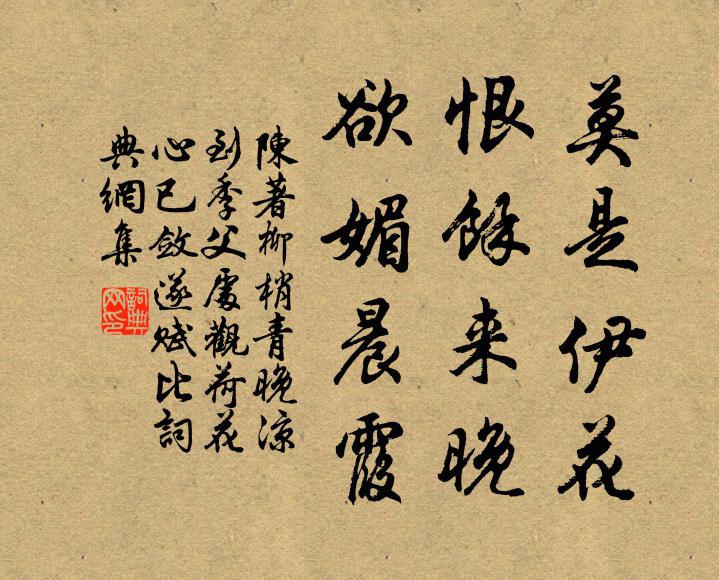 莫是伊花
恨餘来晚
欲媚晨霞
陳著柳梢青晚凉
到季父處觀荷花
心已斂遂賦比詞
典網集
詞典
网印